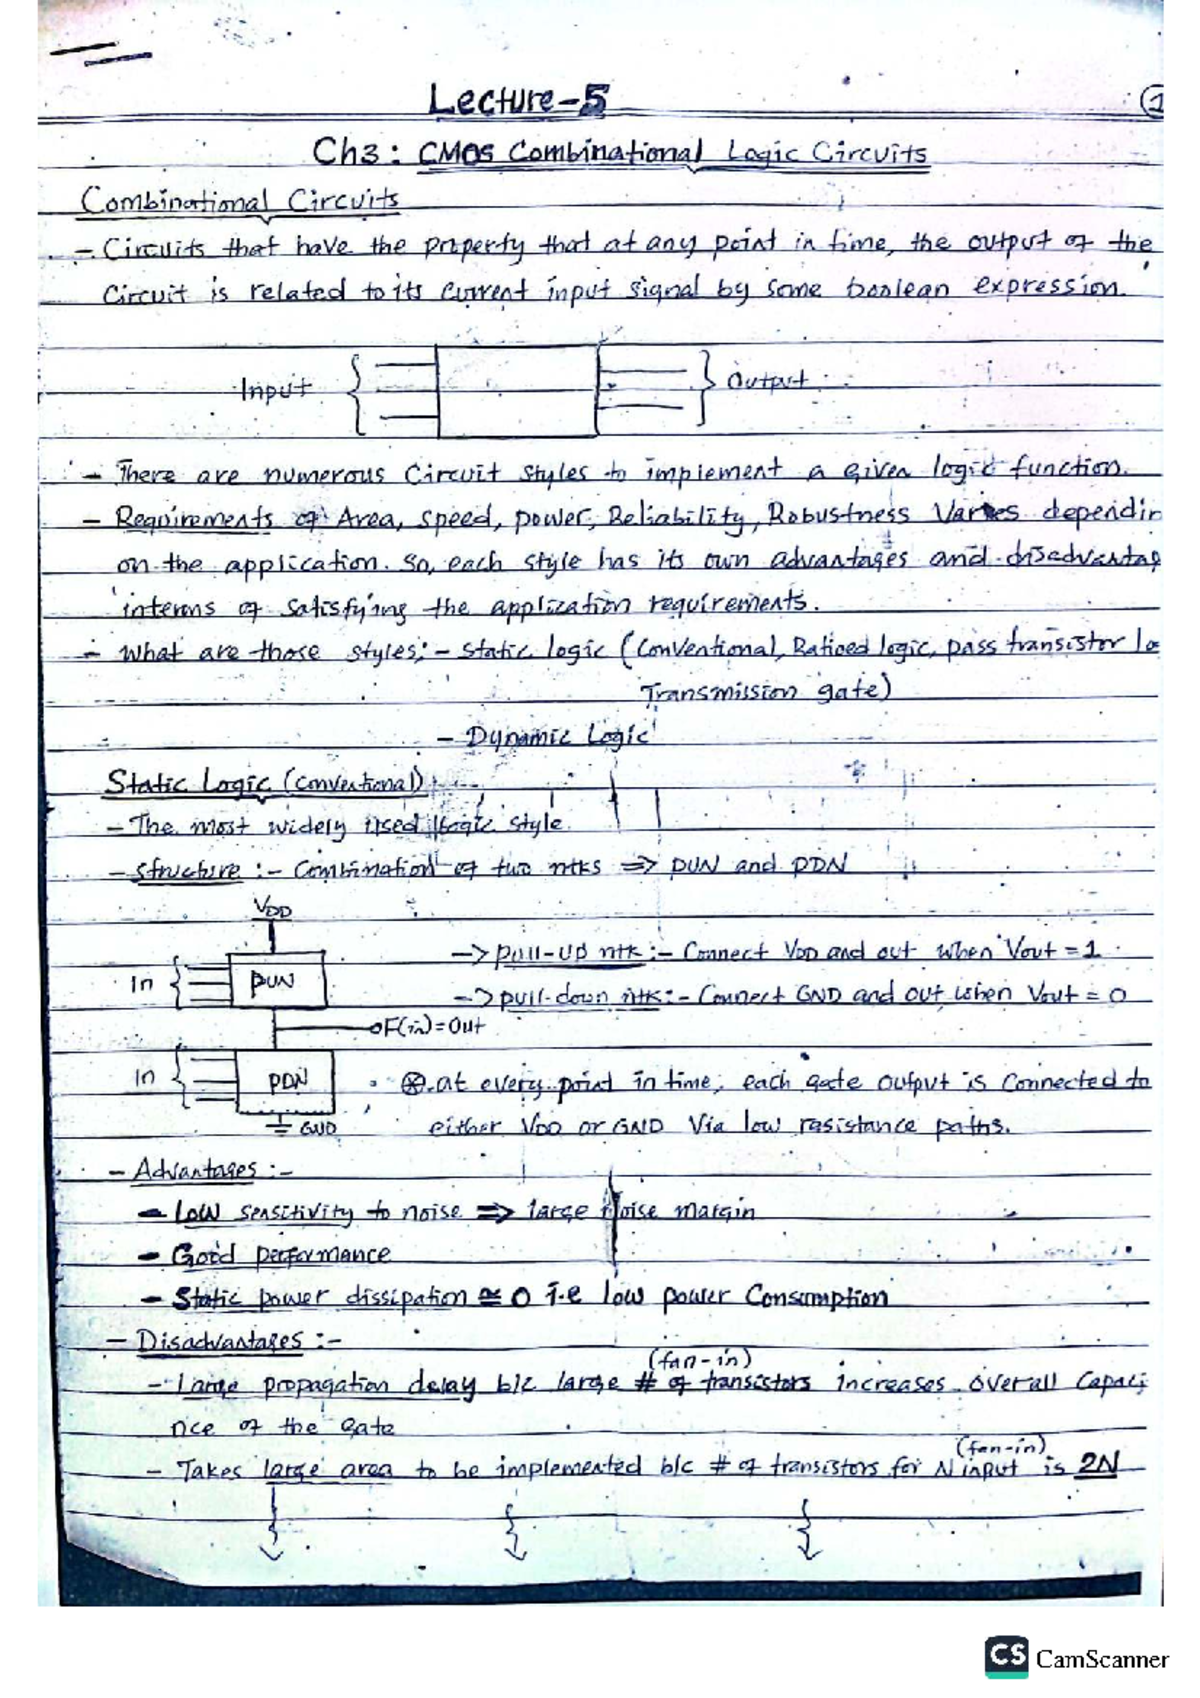 Lecture-5
1
Ch3: CMOS Combinational Logic Circuits
Combinational Circuits
- Circuits that have the property that at any point in time, the output of the
Circuit is related to its current input signal by some boolean expression.
Input
Output
- There are numerous Circuit styles to implement a given logic function.
- Requirements of Area, speed, power, Reliability, Robustness Varies dependin
on the application. So, each style has its own advantages and disadvantag
interms of satisfying the application requirements.
- What are those styles:- Static logic (Conventional, Ratioed logic, pass transistor lo
Transmission gate)
- Dynamic Logic
Static Logic (conventional)
- The most widely used logic style.
- Structure :- Combination of two ntks => PUN and PDN
VDD
In
PUN
-> pull-up ntk :- Connect VDD and out when Vout = 1
-> pull-down ntk:- Connect GND and out when Vout = 0
F(in)=Out
In
PDN
⊛ at every point in time, each gate output is connected to
GND
either VDD or GND Via low resistance paths.
- Advantages :-
- Low sensitivity to noise => large noise margin
- Good performance
- Static power dissipation ≅ 0 i.e low power Consumption
- Disadvantages :-
(fan-in)
- Large propagation delay b/c large # of transistors increases overall Capaci
nce of the gate
(fan-in)
- Takes large area to be implemented b/c # of transistors for N input is 2N
CS CamScanner